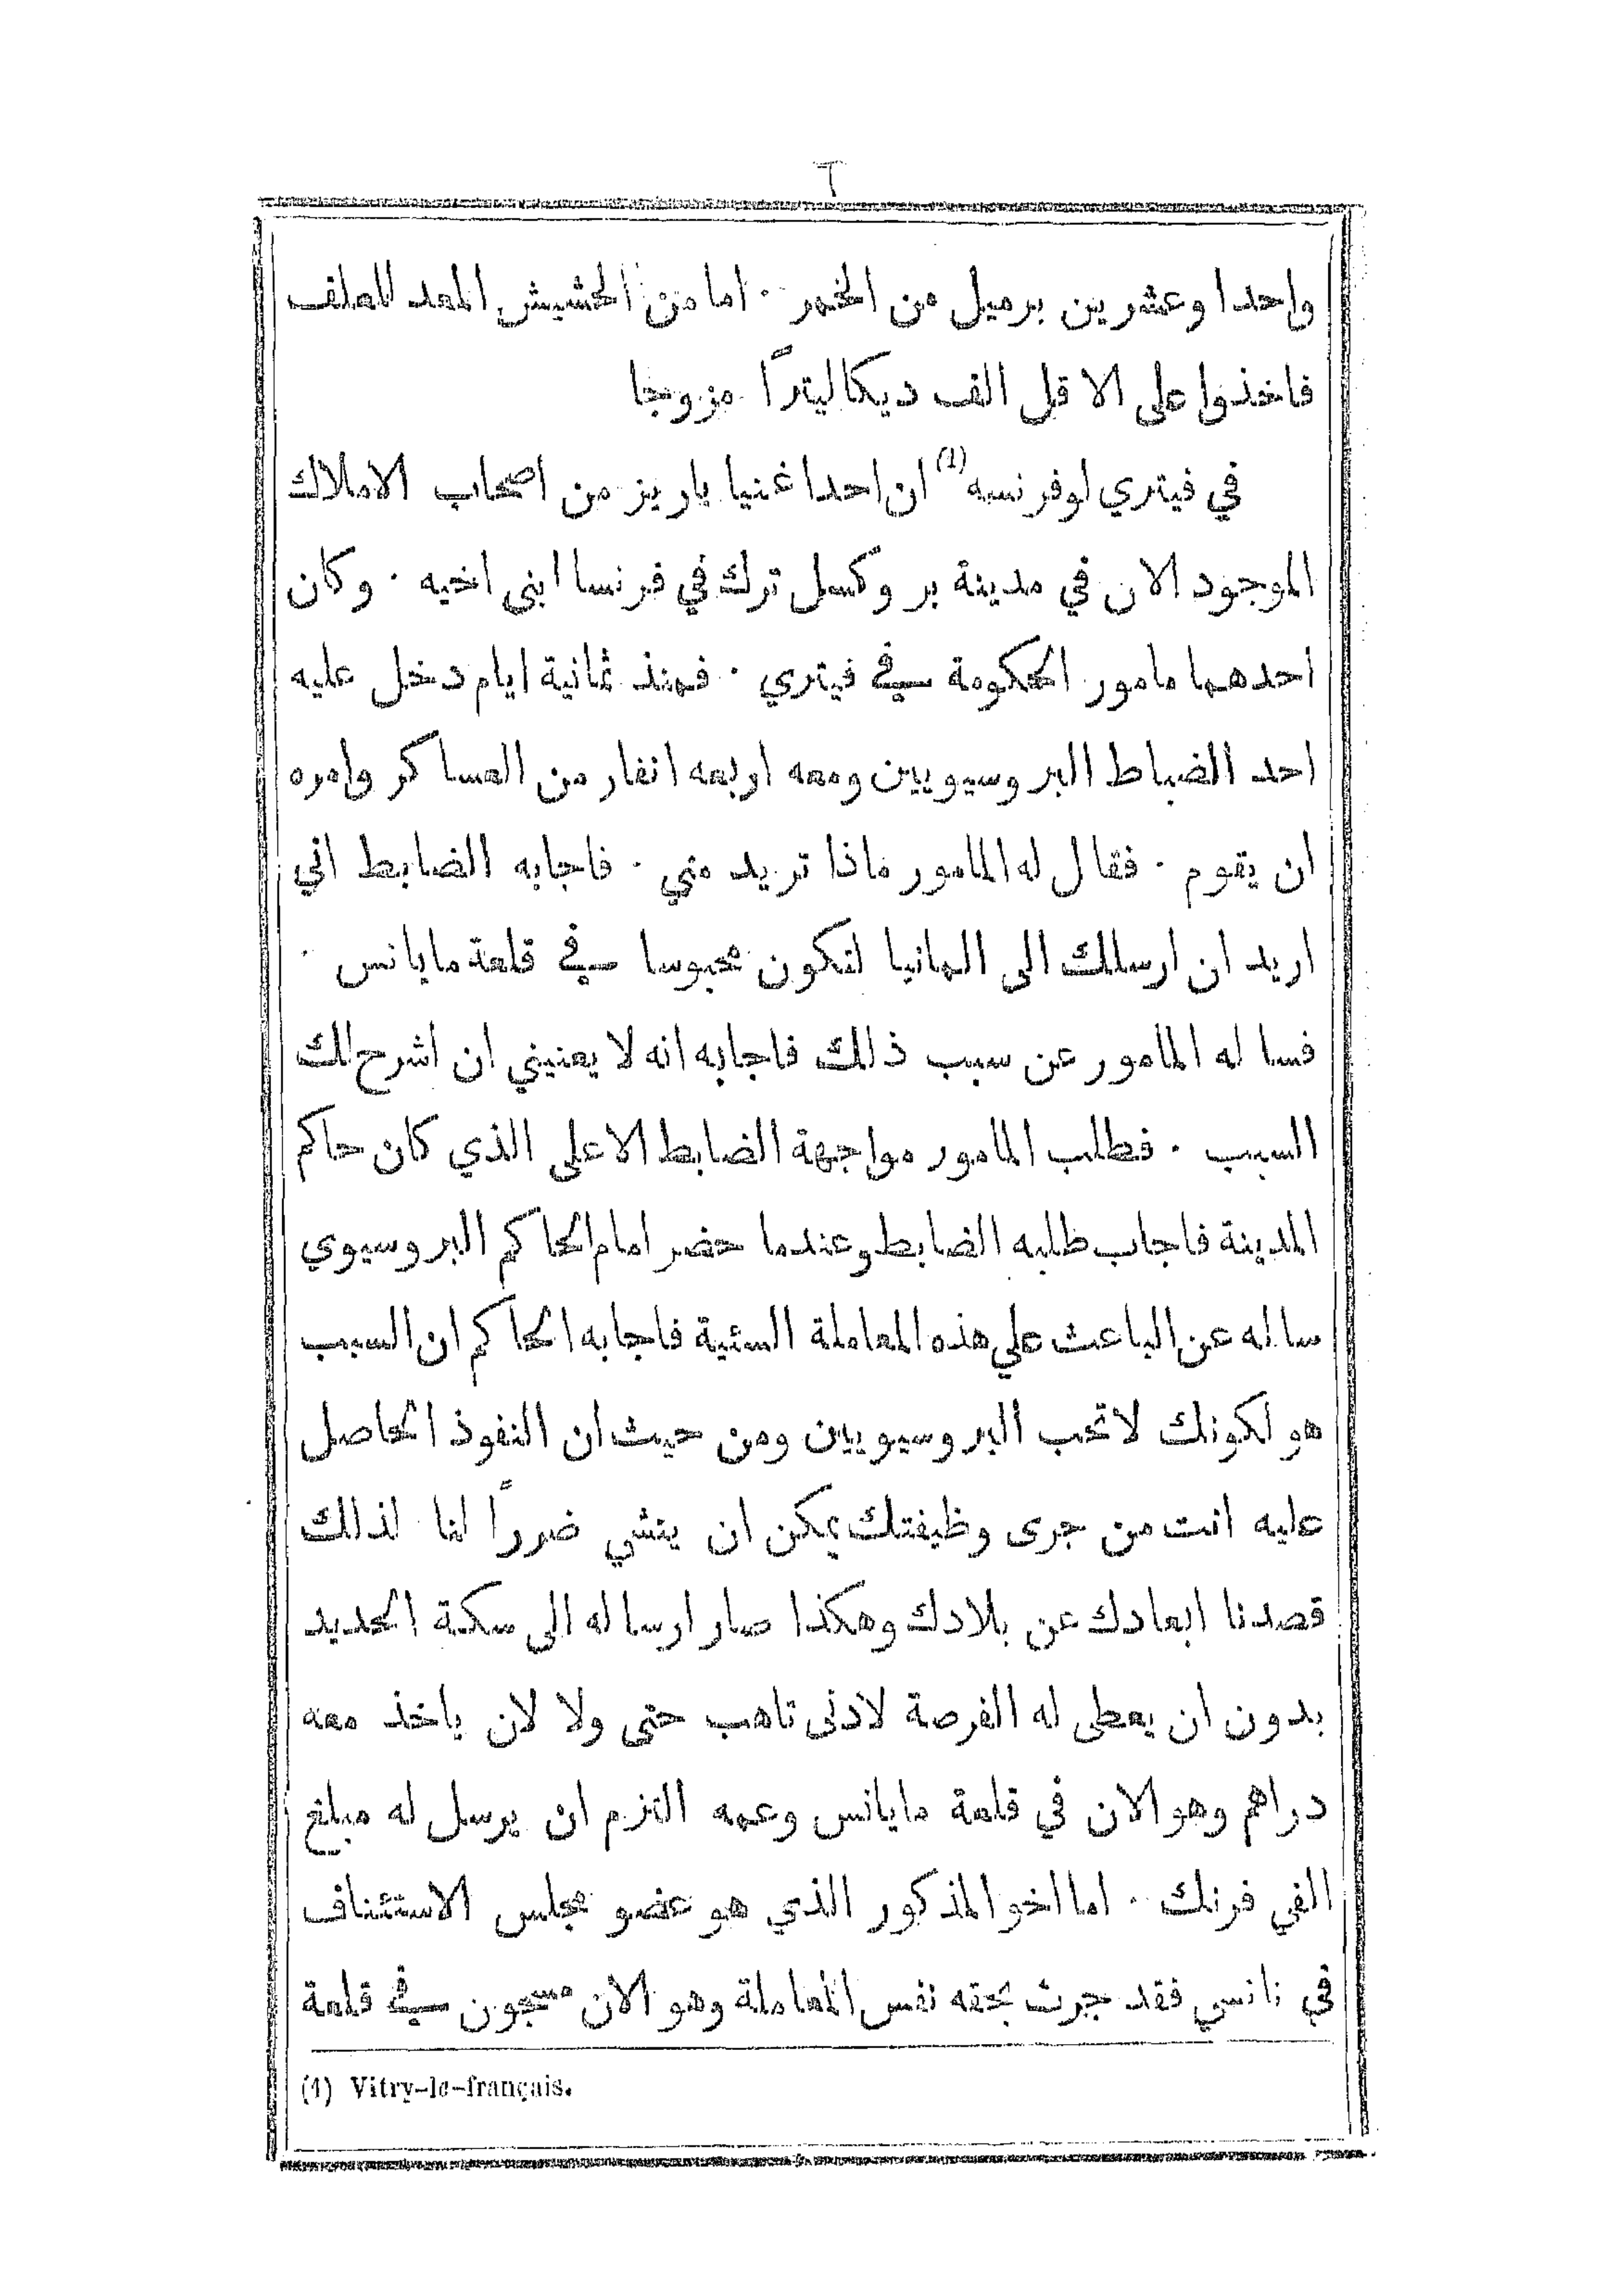 ٦
واحدا وعشرين برميل من الخمر · اما من الحشيش المعد للعلف
فاخذوا على الاقل الف ديكاليتراً مزوجا
في فيتري لوفرنسه (1) ان احدا غنيا باريز من اصحاب الاملاك
الموجود الان في مدينة بروكسل ترك في فرنسا ابنى اخيه · وكان
احدهما مامور الحكومة في فيتري · فمنذ ثمانية ايام دخل عليه
احد الضباط البروسيويين ومعه اربعه انفار من العساكر وامره
ان يقوم · فقال له المامور ماذا تريد مني · فاجابه الضابط اني
اريد ان ارسلك الى المانيا لتكون محبوسا في قلعة مايانس ·
فساله المامور عن سبب ذلك فاجابه انه لا يعنيني ان اشرح لك
السبب · فطلب المامور مواجهة الضابط الاعلى الذي كان حاكم
المدينة فاجاب طلبه الضابط وعندما حضر امام الحاكم البروسيوي
ساله عن الباعث على هذه المعاملة السئية فاجابه الحاكم ان السبب
هو لكونك لا تحب البروسيويين ومن حيث ان النفوذ الحاصل
عليه انت من جرى وظيفتك يمكن ان ينشي ضرراً لنا لذلك
قصدنا ابعادك عن بلادك وهكذا صار ارساله الى سكة الحديد
بدون ان يعطى له الفرصة لادنى تاهب حتى ولا لان ياخذ معه
دراهم وهو الان في قلعة مايانس وعمه التزم ان يرسل له مبلغ
الفي فرنك · اما اخو المذكور الذي هو عضو مجلس الاستئناف
في نانسي فقد جرت بحقه نفس المعاملة وهو الان مسجون في قلعة
(1) Vitry-le-français.